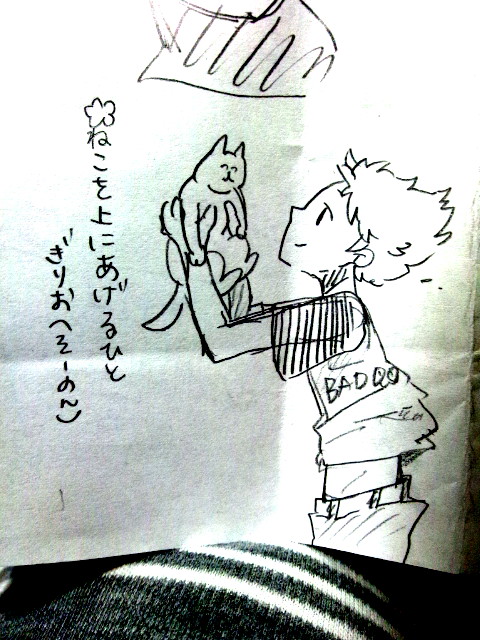 ねこを上にあげるひと
ぎりおへそーのん)
BADQO